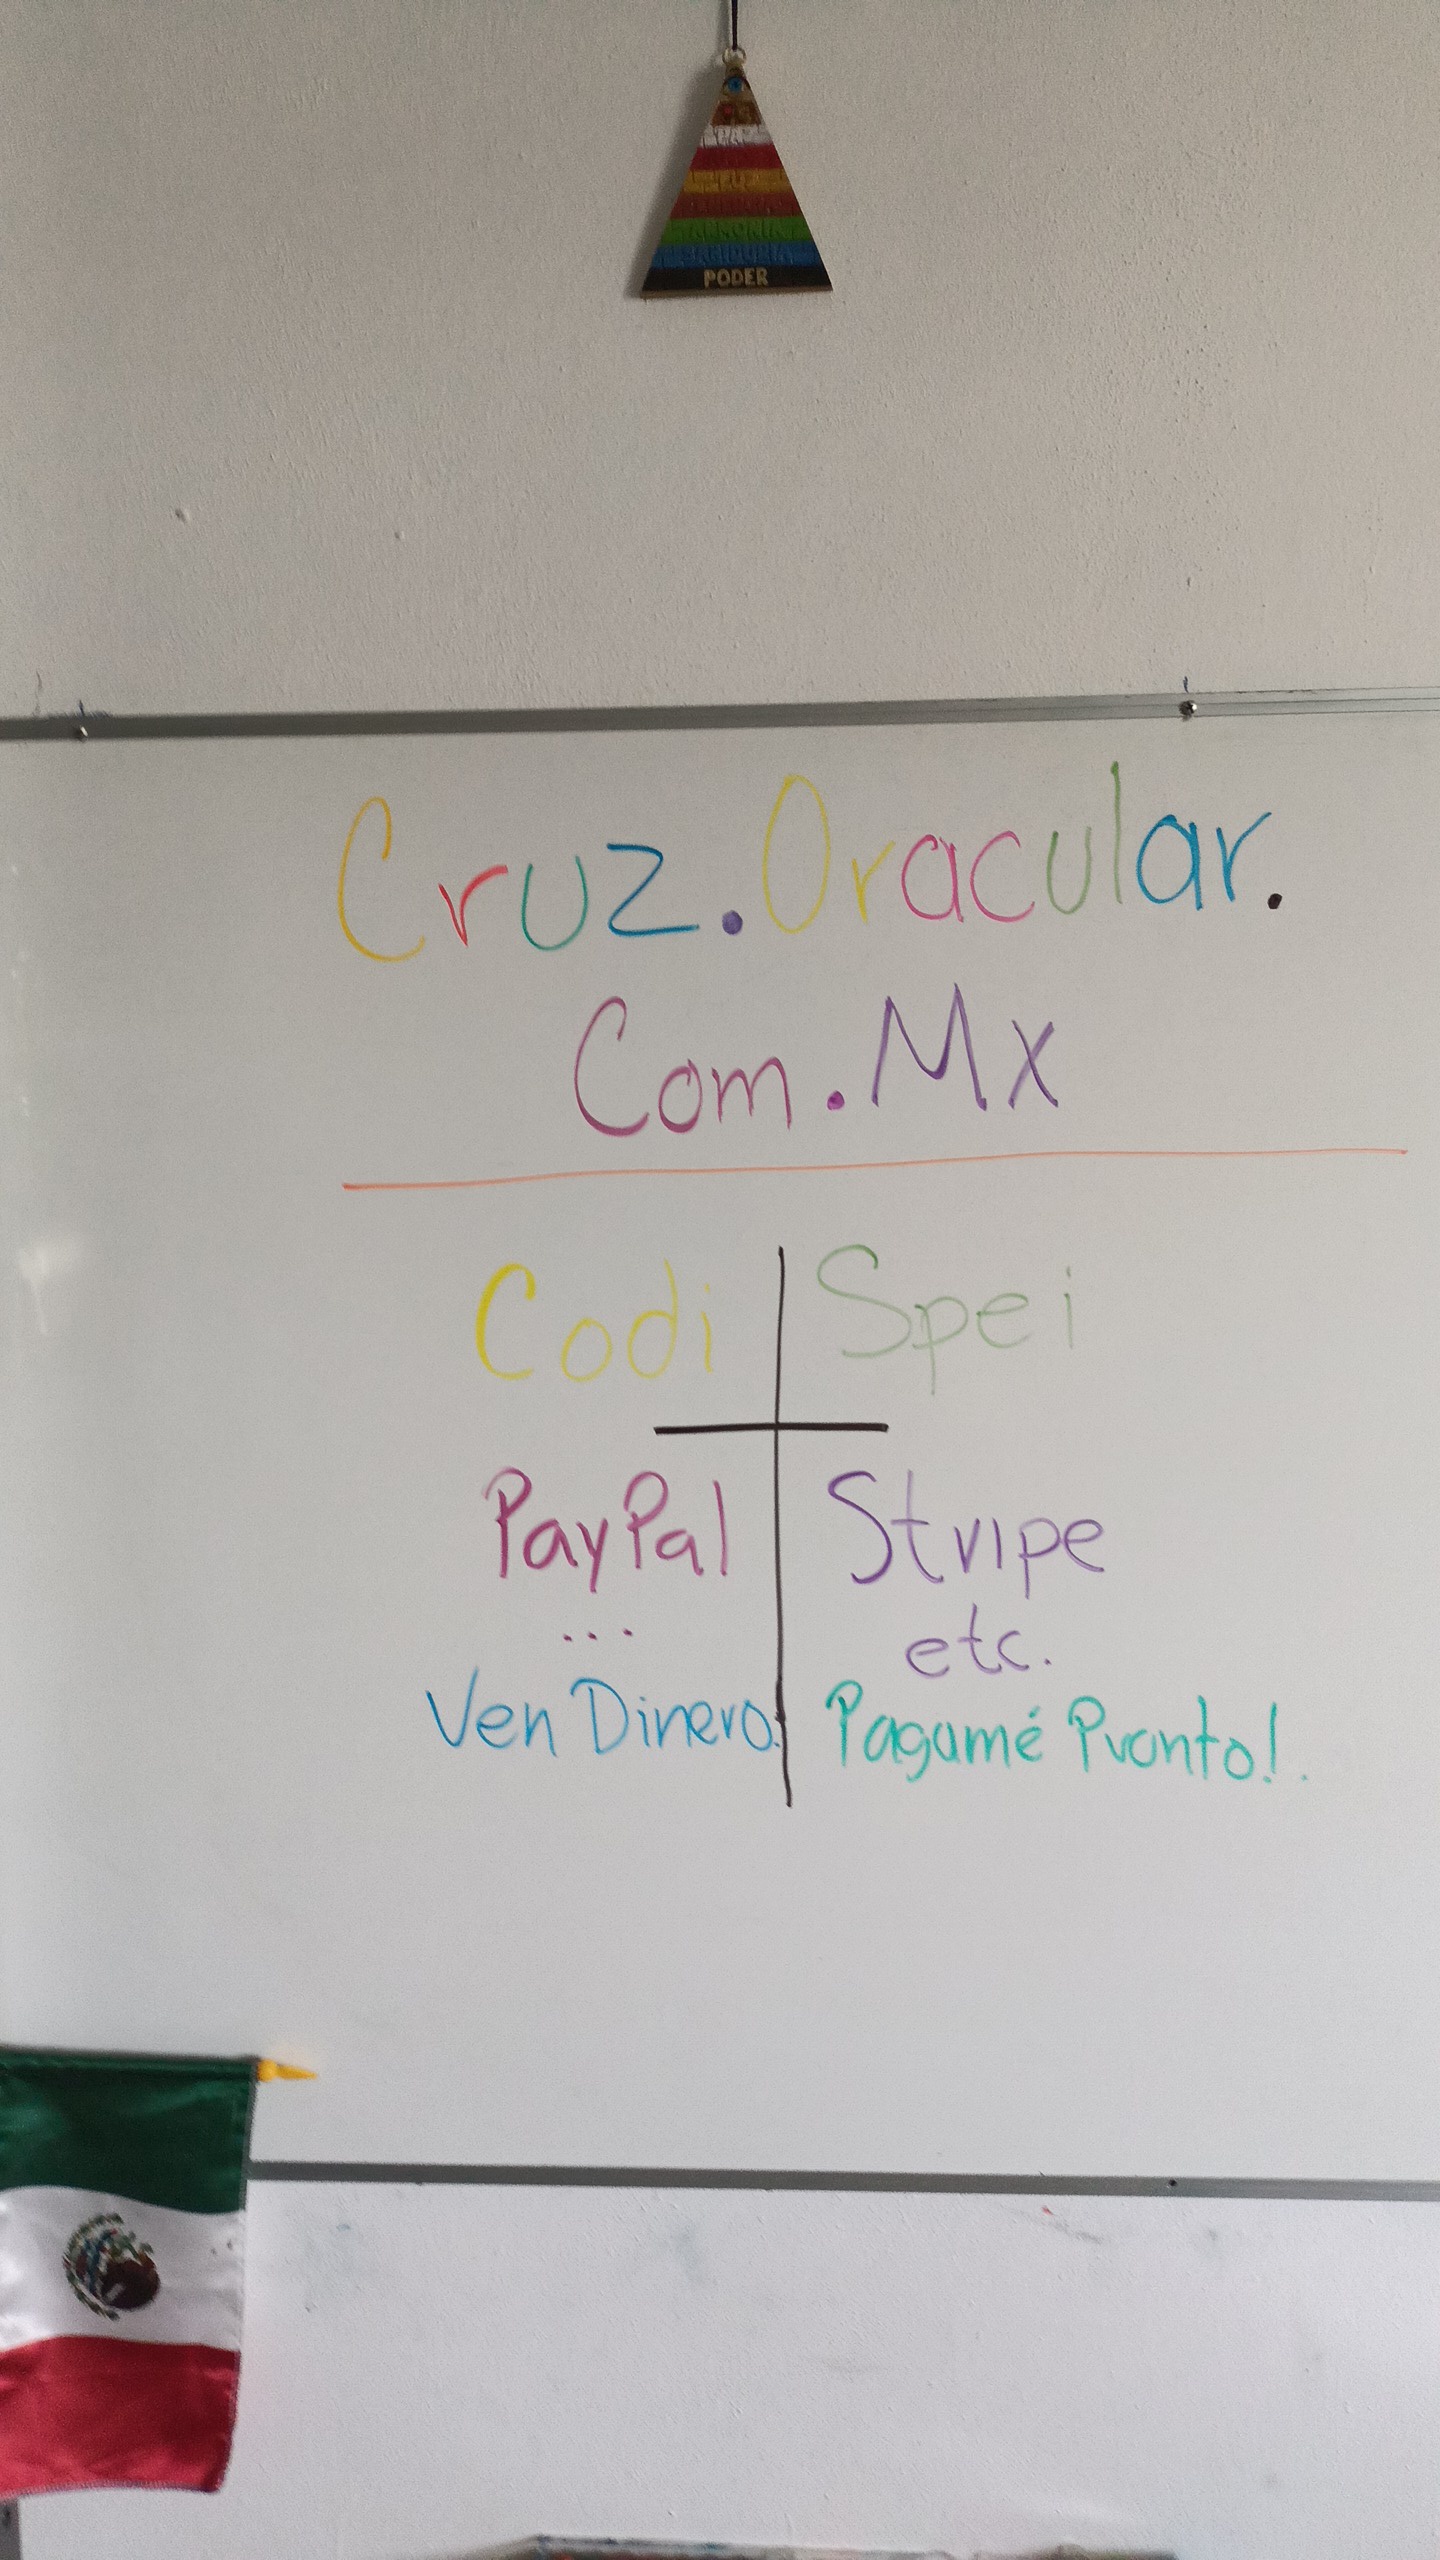 PAZ
LUZ
ARMONÍA
SABIDURÍA
PODER
Cruz.Oracular.
Com.Mx
Codi Spei
PayPal Stripe
... etc.
Ven Dinero. Pagamé Pronto!.